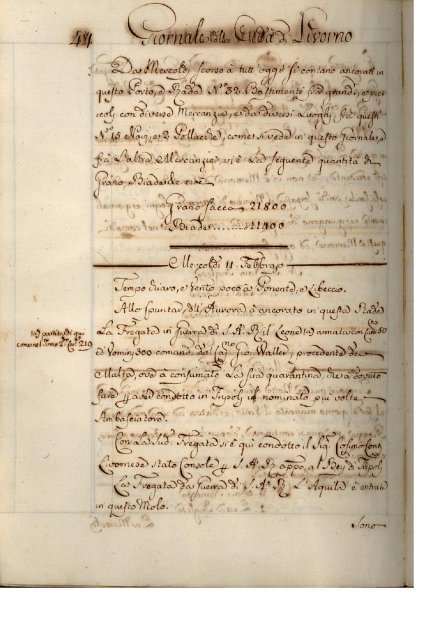 44 Giornale della Città di Livorno
Da Mercoledì scorso à tutt' oggi si contano ancorati in
questo Porto, e Rada N.° 32. Bastimenti frà grandi, e picc
coli con diverse Mercanzie, e da diversi Luoghi, frà questi
N.° 15 Navi, e 2 Pollacche, come si veda in questo Giornale, e
frà l'altre Mercanzie, vi è la seguente quantità di
Grano, e Biade, cioè
Grano Sacca 21800
Biade 11400
Mercoledì 11. Febbraro
Tempo chiaro, e Vento poco à Ponente, e Libeccio.
Allo spuntar dell' Aurora si è ancorato in questa Rada
La Fregata in Guerra di S. A. R. il Leone (a) armata con
(a) partita di qui
come nel Tomo 2.° 210
ed Vomini 300 comand. dal Gio Waller, procedente da
Malta, ove à consumato la sua quarantina, che à dovuto
fare p aver condotto in Tripoli il nominato più volte
Ambasciatore.
Con la Sud.ª Fregata si è qui condotto il Sig.
Livornese stato Console p S. A. R. appo al Bey di Tripoli
La Fregata da Guerra di S. A. R. L'Aquila è entrata
in questo Molo.
Sono